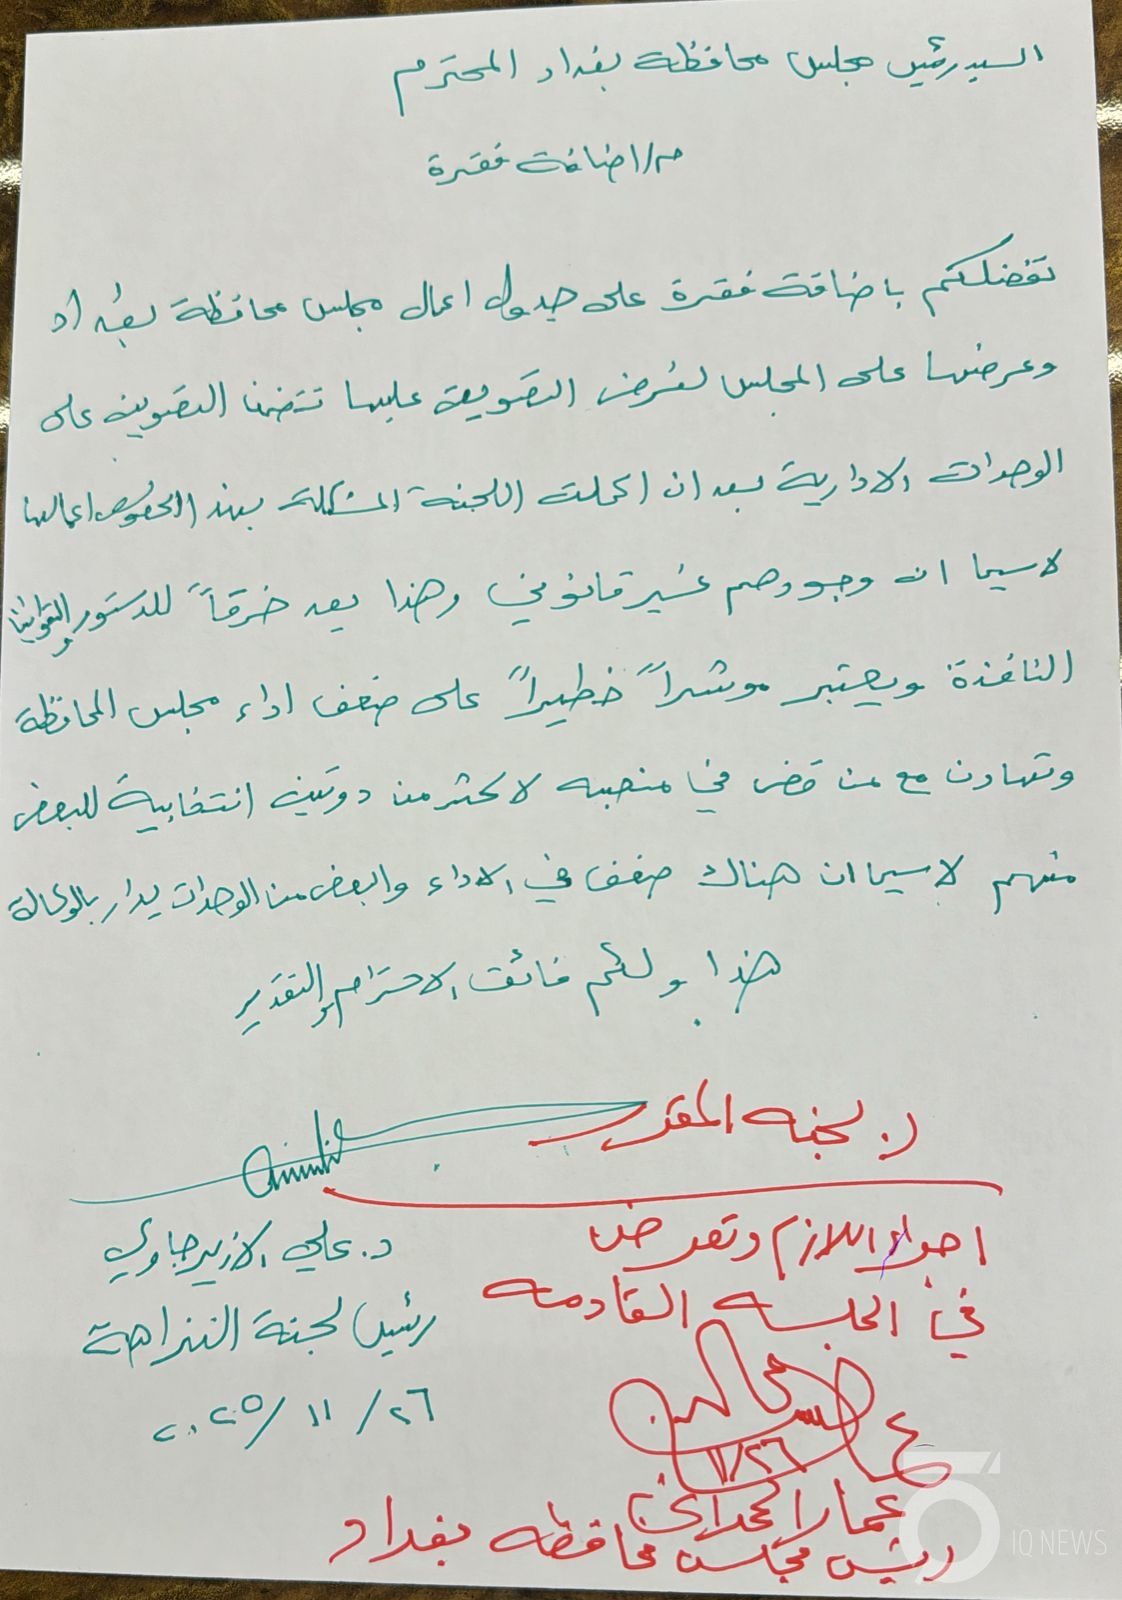 السيد رئيس مجلس محافظة بغداد المحترم
م/ اضافة فقرة
تفضلكم باضافة فقرة على جدول اعمال مجلس محافظة بغداد
وعرضها على المجلس لغرض التصويت عليها تتضمن التصويت على
الوحدات الادارية بعد ان اكملت اللجنة المشكلة بهذا الخصوص اعمالها
لاسيما ان وجودهم غير قانوني وهذا يعد خرقاً للدستور والقوانين
النافذة ويعتبر موشراً خطيراً على ضعف اداء مجلس المحافظة
وتهاون مع من قضى في منصبه لاكثر من دورتين انتخابية للبعض
منهم لاسيما ان هناك ضعف في الاداء والبعض من الوحدات يدار بالوكالة
هذا ولكم فائق الاحترام والتقدير
د. علي الازيرجاوي
رئيس لجنة النزاهة
٢٦/ ١١ /٢٠٢٥
لجنه المقرر
اجراء اللازم وتعرض
في الجلسه القادمه
١١/٢٦
عمار الحمداني
رئيس مجلس محافظه بغداد
IQ NEWS